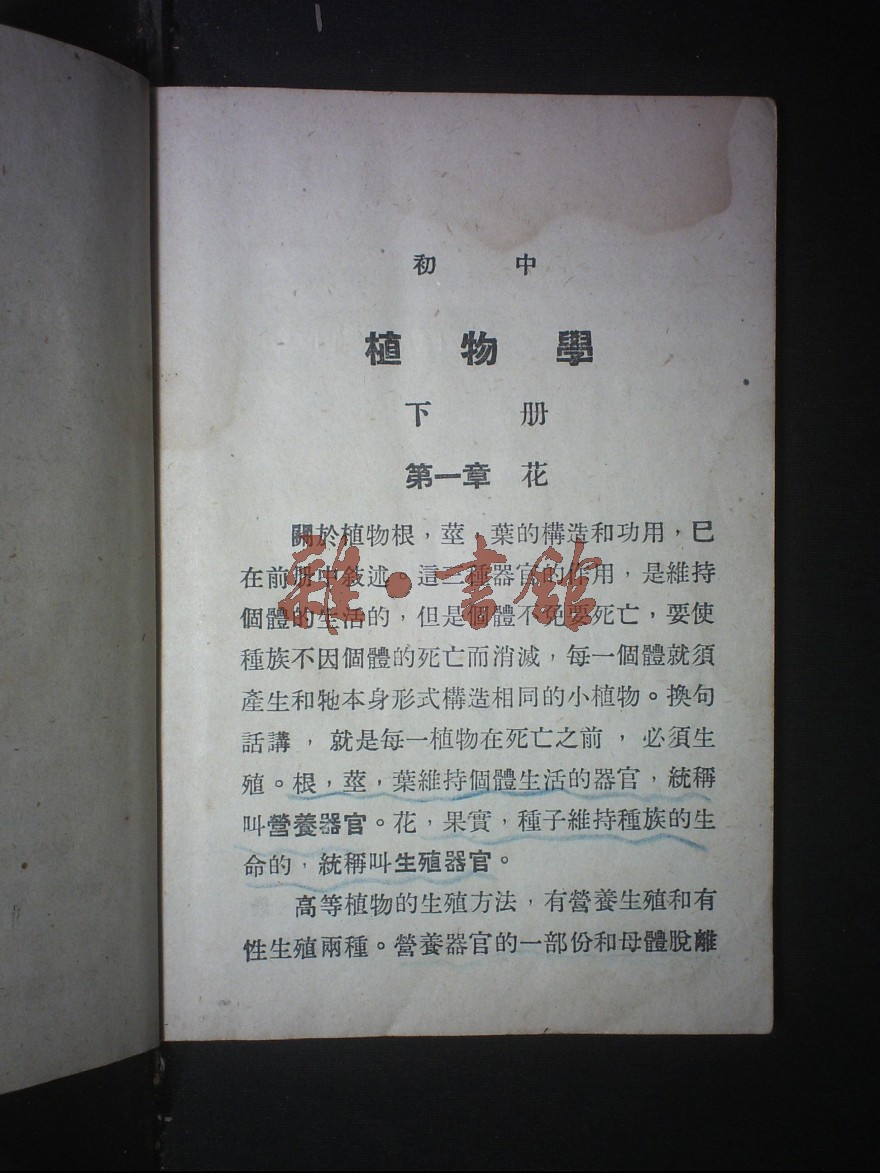 初 中
植 物 學
下 册
第一章 花
關於植物根，莖，葉的構造和功用，已
在前册中敍述。這三種器官的作用，是維持
個體的生活的，但是個體不免要死亡，要使
種族不因個體的死亡而消滅，每一個體就須
產生和牠本身形式構造相同的小植物。換句
話講，就是每一植物在死亡之前，必須生
殖。根，莖，葉維持個體生活的器官，統稱
叫營養器官。花，果實，種子維持種族的生
命的，統稱叫生殖器官。
高等植物的生殖方法，有營養生殖和有
性生殖兩種。營養器官的一部份和母體脫離
雜·書館